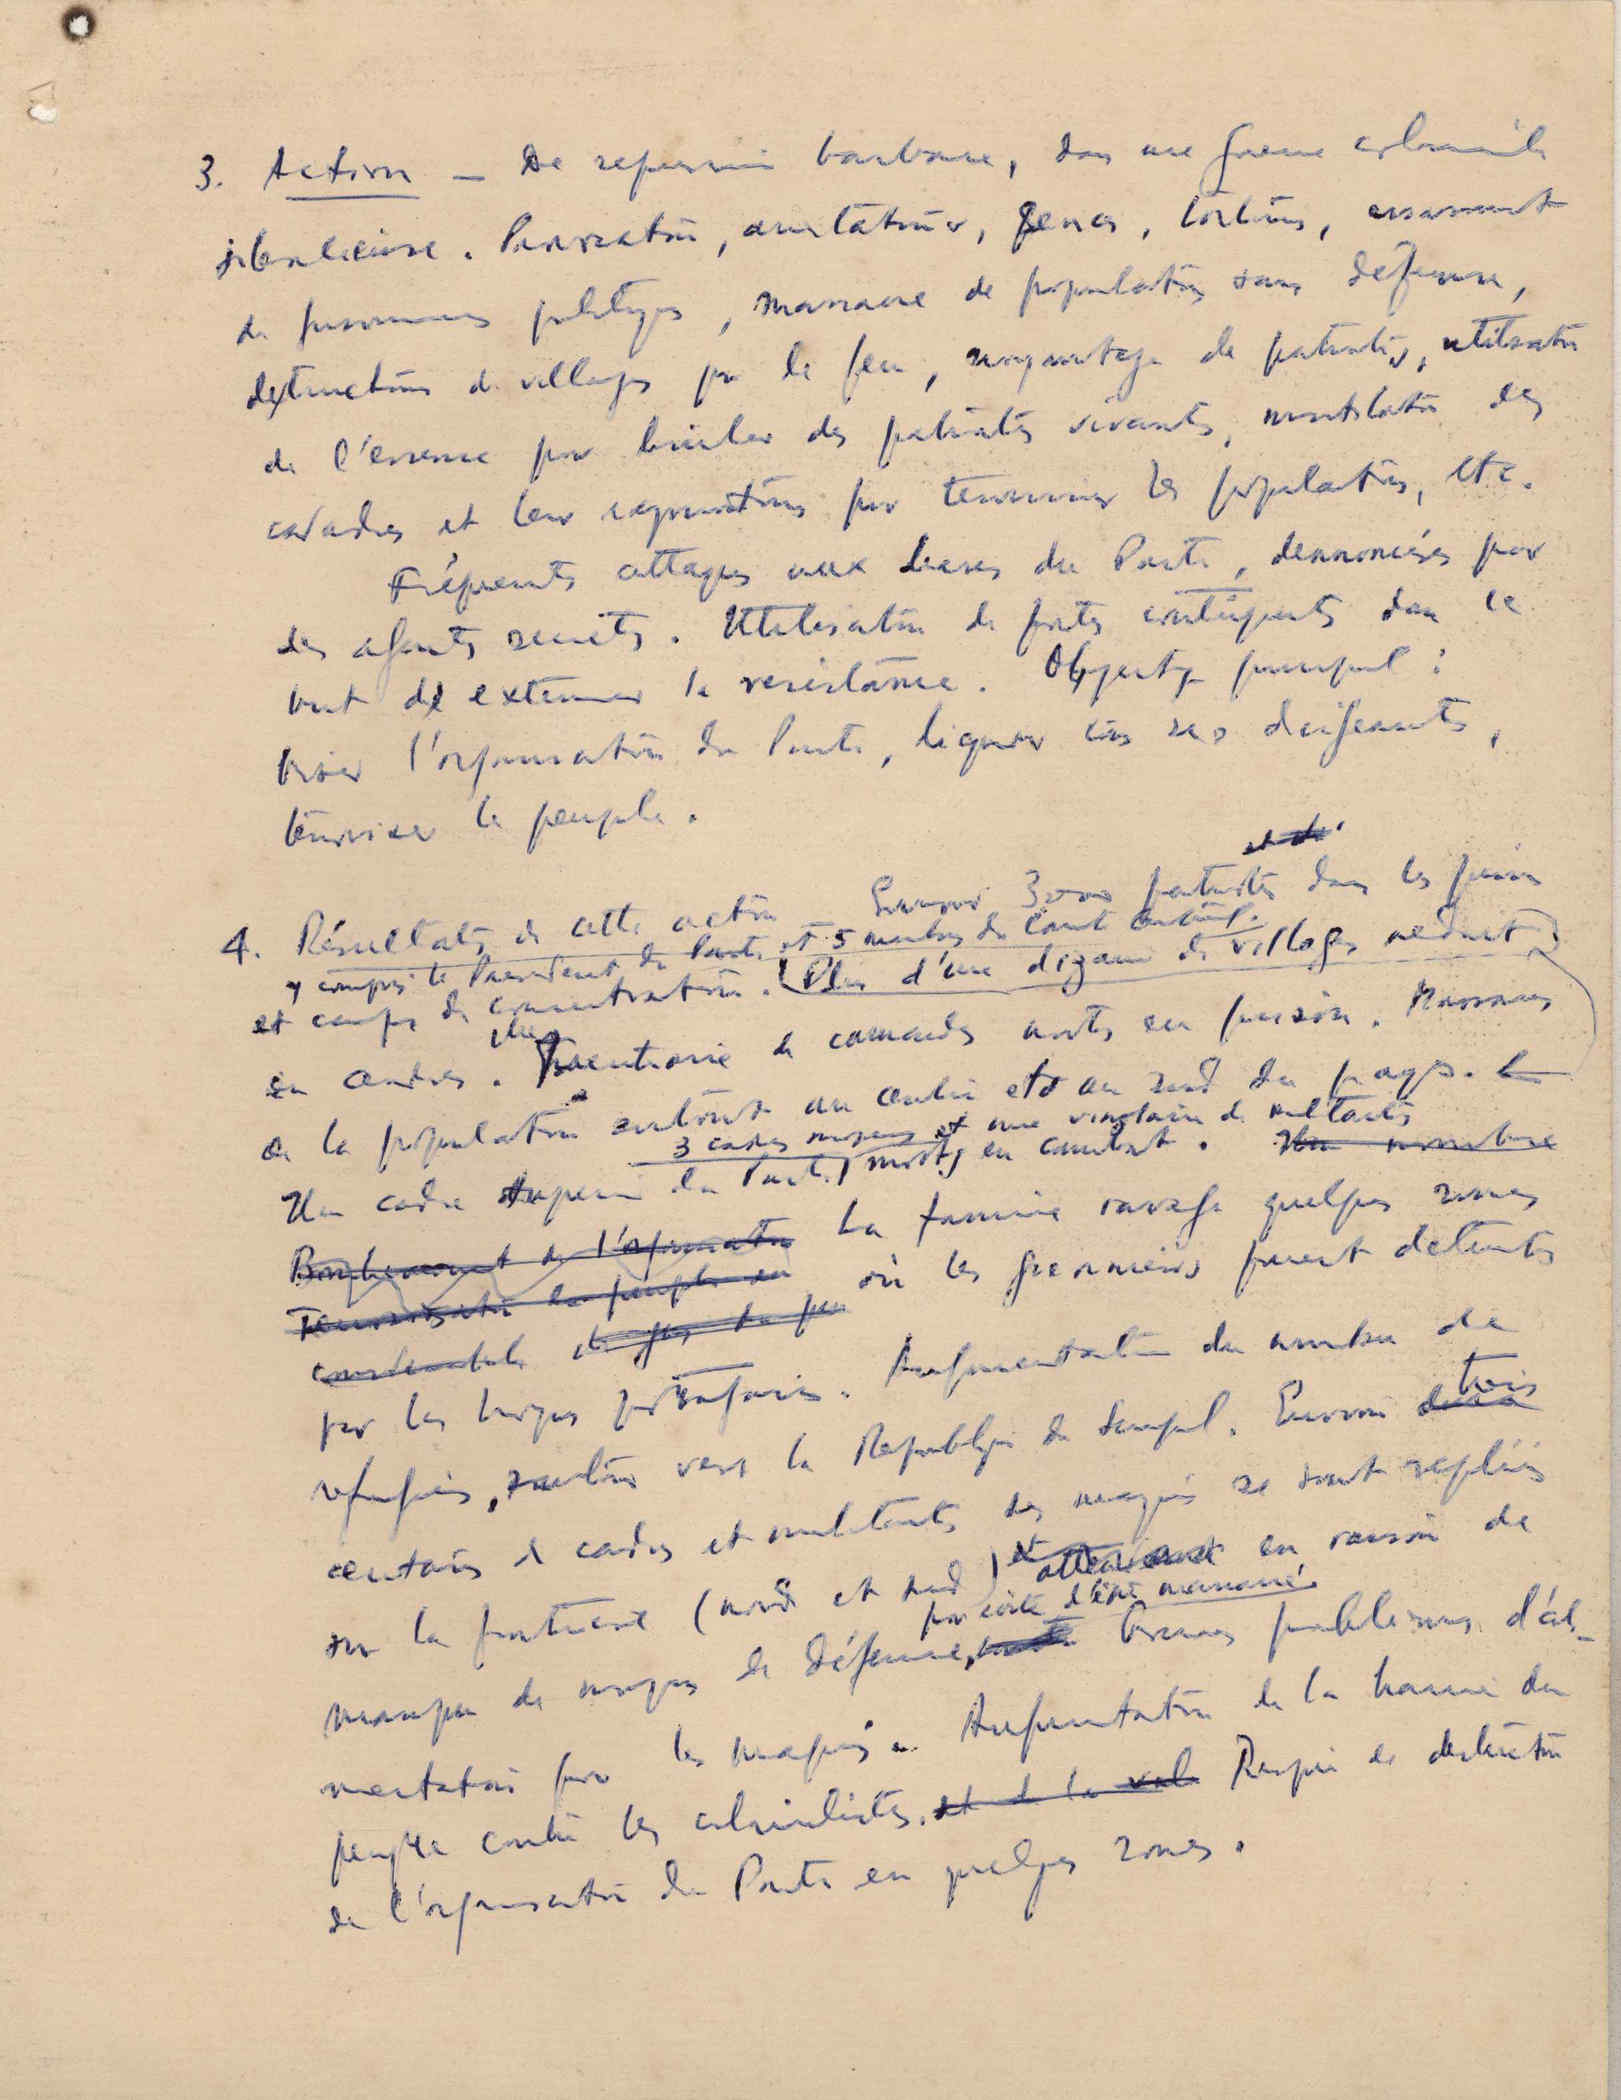 3. Action — De repression barbare, dans une guerre coloniale
silencieuse. Provocation, arrestations, tortures, assassinat
de personnes politiques, massacre de populations sans défense,
destructions de villages par le feu, de patriotes, utilisation
de l'essence pour bruler des patriotes vivants, mutilation des
cadavres et leur expositions pour terroriser les populations, etc.
Fréquents attaques aux bases du Parti, dennoncées par
des agents secrets. Utilisation de forts contingents dans le
but de exterminer la resistance. Objectif principal :
briser l'organisation du Parti, liquider ses dirigeants,
térroriser le peuple.
et de
4. Résultats de cette action Environ 3000 patriotes dans les prisons
y compris le President du Parti et 5 membres du Comité Central.
et camps de concentration. (Plus d'une dizaine de villages reduits)
en cendres. Plus trentaine de camarades morts en prison. Massacres
de la population surtout au centre et au sud du pays.
3 cadres moyens et une vingtaine de militants
Un cadre superieur du Parti, morts en combat. Un nombre
Bombardement de l'organisation La famine ravage quelques zones
Terrorisation du peuple en où les greniers furent detruits
considerable
par les troupes portugaises. Augmentation du nombre de
trois
refugiés, surtout vers la Republique du Senegal. Environ deux
centaines de cadres et militants des maquis se sont repliés
sur la frontiere (nord et sud) et atterrissent en raison de
pour éviter d'être massacrés
manque de moyens de défense, Graves problemes d'ali-
mentation pour les maquis. Augmentation de la haine du
peuple contre les colonialistes. et de la Risque de destruction
de l'organisation du Parti en quelques zones.